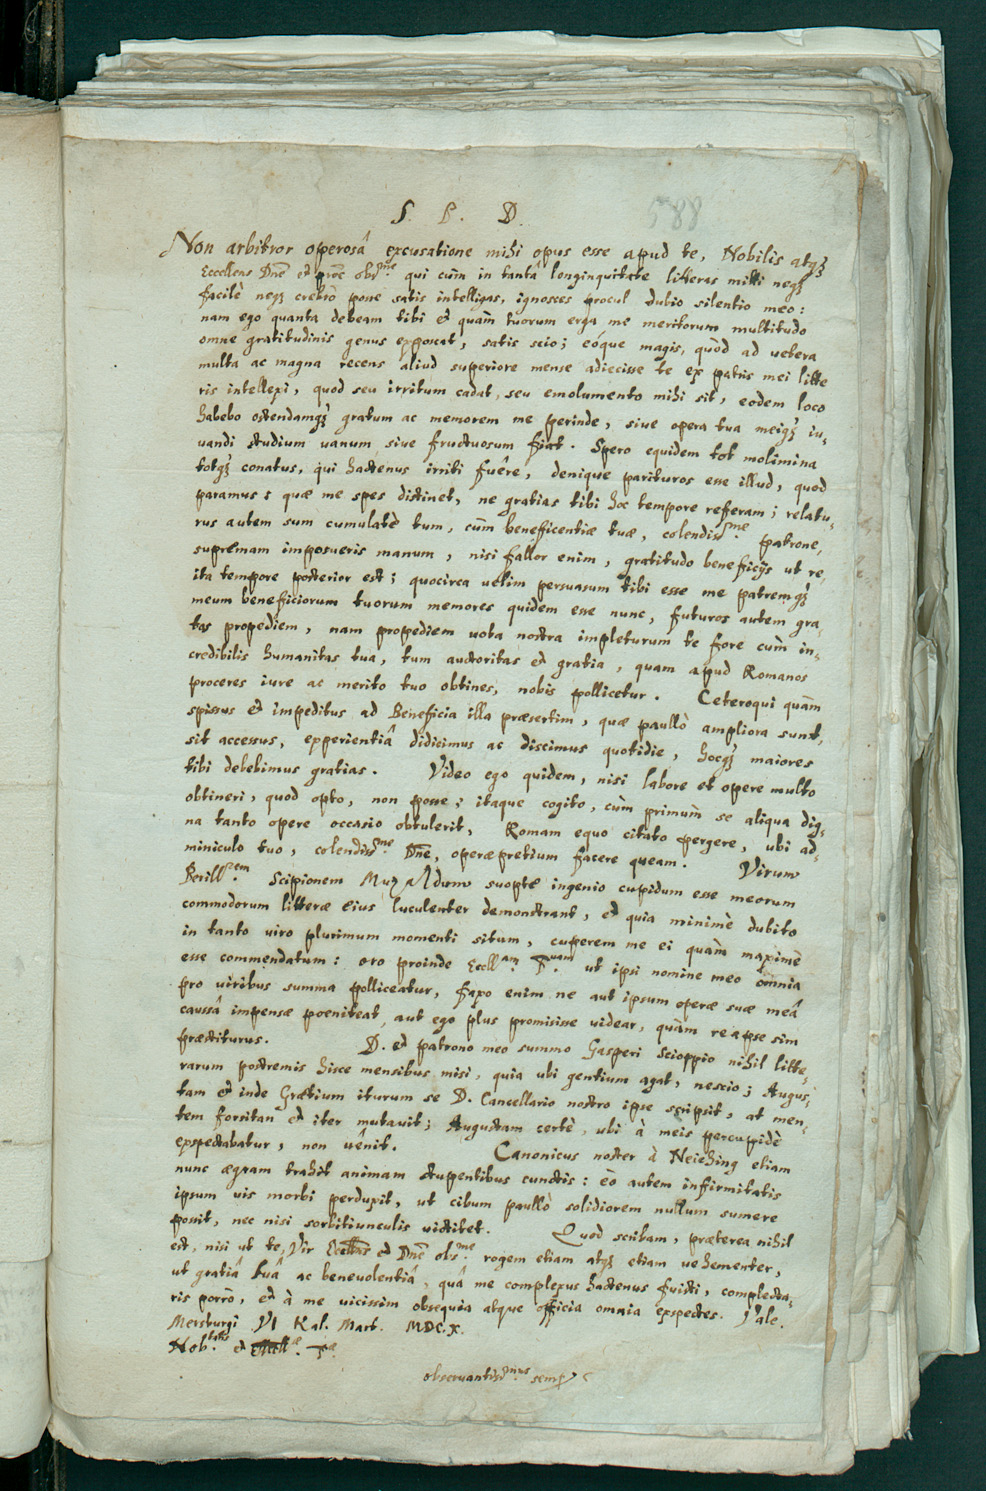 588
S. P. D.
Non arbitror operosâ excusatione mihi opus esse apud te, Nobilis atqꝫ
Excellens Dnē et prōe obsme qui cum in tantâ longinquitate litteras mitti neqꝫ
facilè neqꝫ crebrò posse satis intelligas, ignosces procul dubio silentio meo:
nam ego quanta debeam tibi et quàm tuorum erga me meritorum multitudo
omne gratitudinis genus exposcat, satis scio; eóque magis, quòd ad vetera
multa ac magna recens aliud superiore mense adiecisse te ex patris mei litte
ris intellexi, quod seu irritum cadat, seu emolumento mihi sit, eodem loco
habebo ostendamqꝫ gratum ac memorem me perinde, siue opera tua meiqꝫ iu-
uandi studium uanum siue fructuosum fiat. Spero equidem tot molimina
totqꝫ conatus, qui hactenus irriti fuêre, denique parituros esse illud, quod
paramus: quæ me spes distinet, ne gratias tibi hoc tempore referam; relatu-
rus autem sum cumulatè tum, cùm beneficentiæ tuæ, colendissme patrone,
supremam imposueris manum, nisi fallor enim, gratitudo beneficijs ut re,
ita tempore posterior est; quocirca uelim persuasum tibi esse me patremqꝫ
meum beneficiorum tuorum memores quidem esse nunc, futuros autem gra-
tos propediem, nam propediem uota nostra impleturum te fore cùm in-
credibilis humanitas tua, tum auctoritas et gratia, quam apud Romanos
proceres iure ac merito tuo obtines, nobis pollicetur. Ceteroqui quàm
spissus et impeditus ad Beneficia illa præsertim, quæ paullò ampliora sunt,
sit accessus, experientiâ didicimus ac discimus quotidie, hocqꝫ maiores
tibi debebimus gratias. Video ego quidem, nisi labore et opere multo
obtineri, quod opto, non posse; itaque cogito, cùm primùm se aliqua dig-
na tanto opere occasio obtulerit, Romam equo citato pergere, ubi ad-
miniculo tuo, colendissme Dnē, operæpretium facere queam. Virum
Perillrem Scipionem suopte ingenio cupidum esse meorum
commodorum litteræ eius luculenter demonstrant, et quia minimè dubito
in tanto viro plurimum momenti situm, cuperem me ei quàm maximè
esse commendatum: oro proinde Excellam Tuam ut ipsi nomine meo omnia
pro viribus summa polliceatur, faxo enim ne aut ipsum operæ suæ meâ
caussâ impensæ poeniteat, aut ego plus promisisse videar, quàm reapse sim
præstiturus. D. et patrono meo summo Gasperi Scioppio nihil litte-
rarum postremis hisce mensibus misi, quia ubi gentium agat, nescio; Augus-
tam et inde Grætium iturum se D. Cancellario nostro ipse scripsit, at men-
tem forsitan et iter mutauit; Augustam certè, ubi à meis percupidè
exspectabatur, non uênit. Canonicus noster à Neiching etiam
nunc ægram trahit animam stupentibus cunctis: eò autem infirmitatis
ipsum uis morbi perduxit, ut cibum paullò solidiorem nullum sumere
possit, nec nisi sorbitiunculis uictitet. Quod scribam, præterea nihil
est, nisi ut te, Vir Excellens et Dnē obsme rogem etiam atqꝫ etiam uehementer,
ut gratiâ tuâ ac beneuolentiâ, quâ me complexus hactenus fuisti, complecta-
ris porrò, et à me uicissim obsequia atque officia omnia exspectes. Vale.
Mersburgi VI Kal. Mart. MDCX.
Nob.
obseruantissimus semp